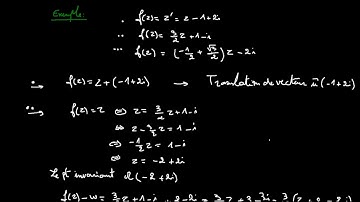 Exemple:
• f(z) = z' = z - 1 + 2i
•• f(z) = 3/2 z + 1 - i
••• f(z) = (-1/2 + √3/2) z - 2i
• → f(z) = z + (-1 + 2i) → Translation de vecteur u⃗ (-1 + 2i)
•• → f(z) = z ⇔ z = 3/2 z + 1 - i
⇔ z - 3/2 z = 1 - i
⇔ -1/2 z = 1 - i
⇔ z = -2 + 2i
Le pt invariant Ω(-2 + 2i)
f(z) - w = 3/2 z + 1 - i + 2 - 2i = 3/2 z + 3 - 3i